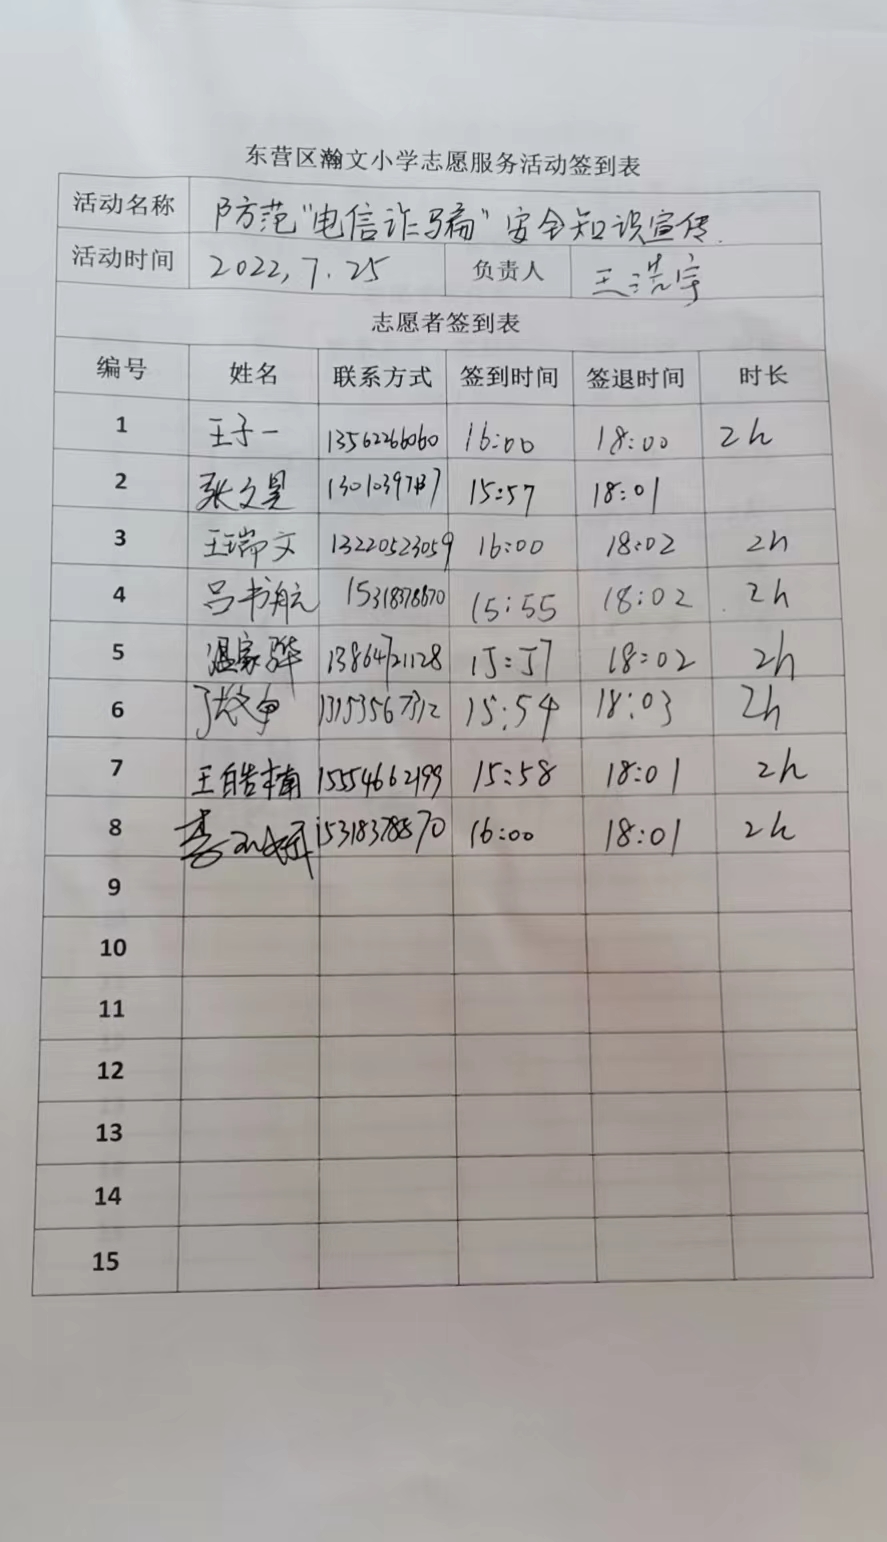 东营区瀚文小学志愿服务活动签到表
活动名称 防范"电信诈骗"安全知识宣传.
活动时间 2022,7.25 负责人 王浩宇
志愿者签到表
编号 姓名 联系方式 签到时间 签退时间 时长
1 王子一 13562266060 16:00 18:00 2h
2 张文昊 15:57 18:01
3 王瑞文 13220523059 16:00 18:02 2h
4 吕书航 15318378870 15:55 18:02 2h
5 温家骅 13864721128 15:57 18:02 2h
6 15:54 18:03 2h
7 王皓楠 15554662199 15:58 18:01 2h
8 15318378870 16:00 18:01 2h
9
10
11
12
13
14
15